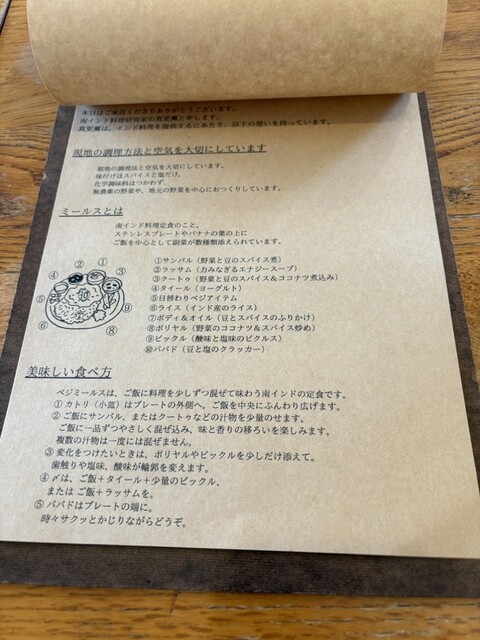 本日はご来店くださりありがとうございます。
南インド料理研究家の真更薫と申します。
真更薫は、インド料理を提供するにあたり、以下の想いを持っています。
現地の調理方法と空気を大切にしています
現地の調理方法と空気を大切にしています。
味付けはスパイスと塩だけ。
化学調味料はつかわず、
無農薬の野菜や、地元の野菜を中心におつくりしています。
ミールスとは
南インド料理定食のこと。
ステンレスプレートやバナナの葉の上に
ご飯を中心として副菜が数種類添えられています。
①サンバル（野菜と豆のスパイス煮）
②ラッサム（力みなぎるエナジースープ）
③クートゥ（野菜と豆のスパイス＆ココナツ煮込み）
④タイール（ヨーグルト）
⑤日替わりベジアイテム
⑥ライス（インド産のライス）
⑦ポディ＆オイル（豆とスパイスのふりかけ）
⑧ポリヤル（野菜のココナツ＆スパイス炒め）
⑨ピックル（酸味と塩味のピクルス）
⑩パパド（豆と塩のクラッカー）
② ① ③ ④ ⑤ ⑥ ⑦ ⑧ ⑨ ⑩
ご飯
美味しい食べ方
ベジミールスは、ご飯に料理を少しずつ混ぜて味わう南インドの定食です。
① カトリ（小皿）はプレートの外側へ。ご飯を中央にふんわり広げます。
② ご飯にサンバル、またはクートゥなどの汁物を少量のせます。
ご飯に一品ずつやさしく混ぜ込み、味と香りの移ろいを楽しみます。
複数の汁物は一度には混ぜません。
③ 変化をつけたいときは、ポリヤルやピックルを少しだけ添えて。
歯触りや塩味、酸味が輪郭を変えます。
④ 〆は、ご飯＋タイール＋少量のピックル、
または ご飯＋ラッサムを。
⑤ パパドはプレートの端に。
時々サクッとかじりながらどうぞ。